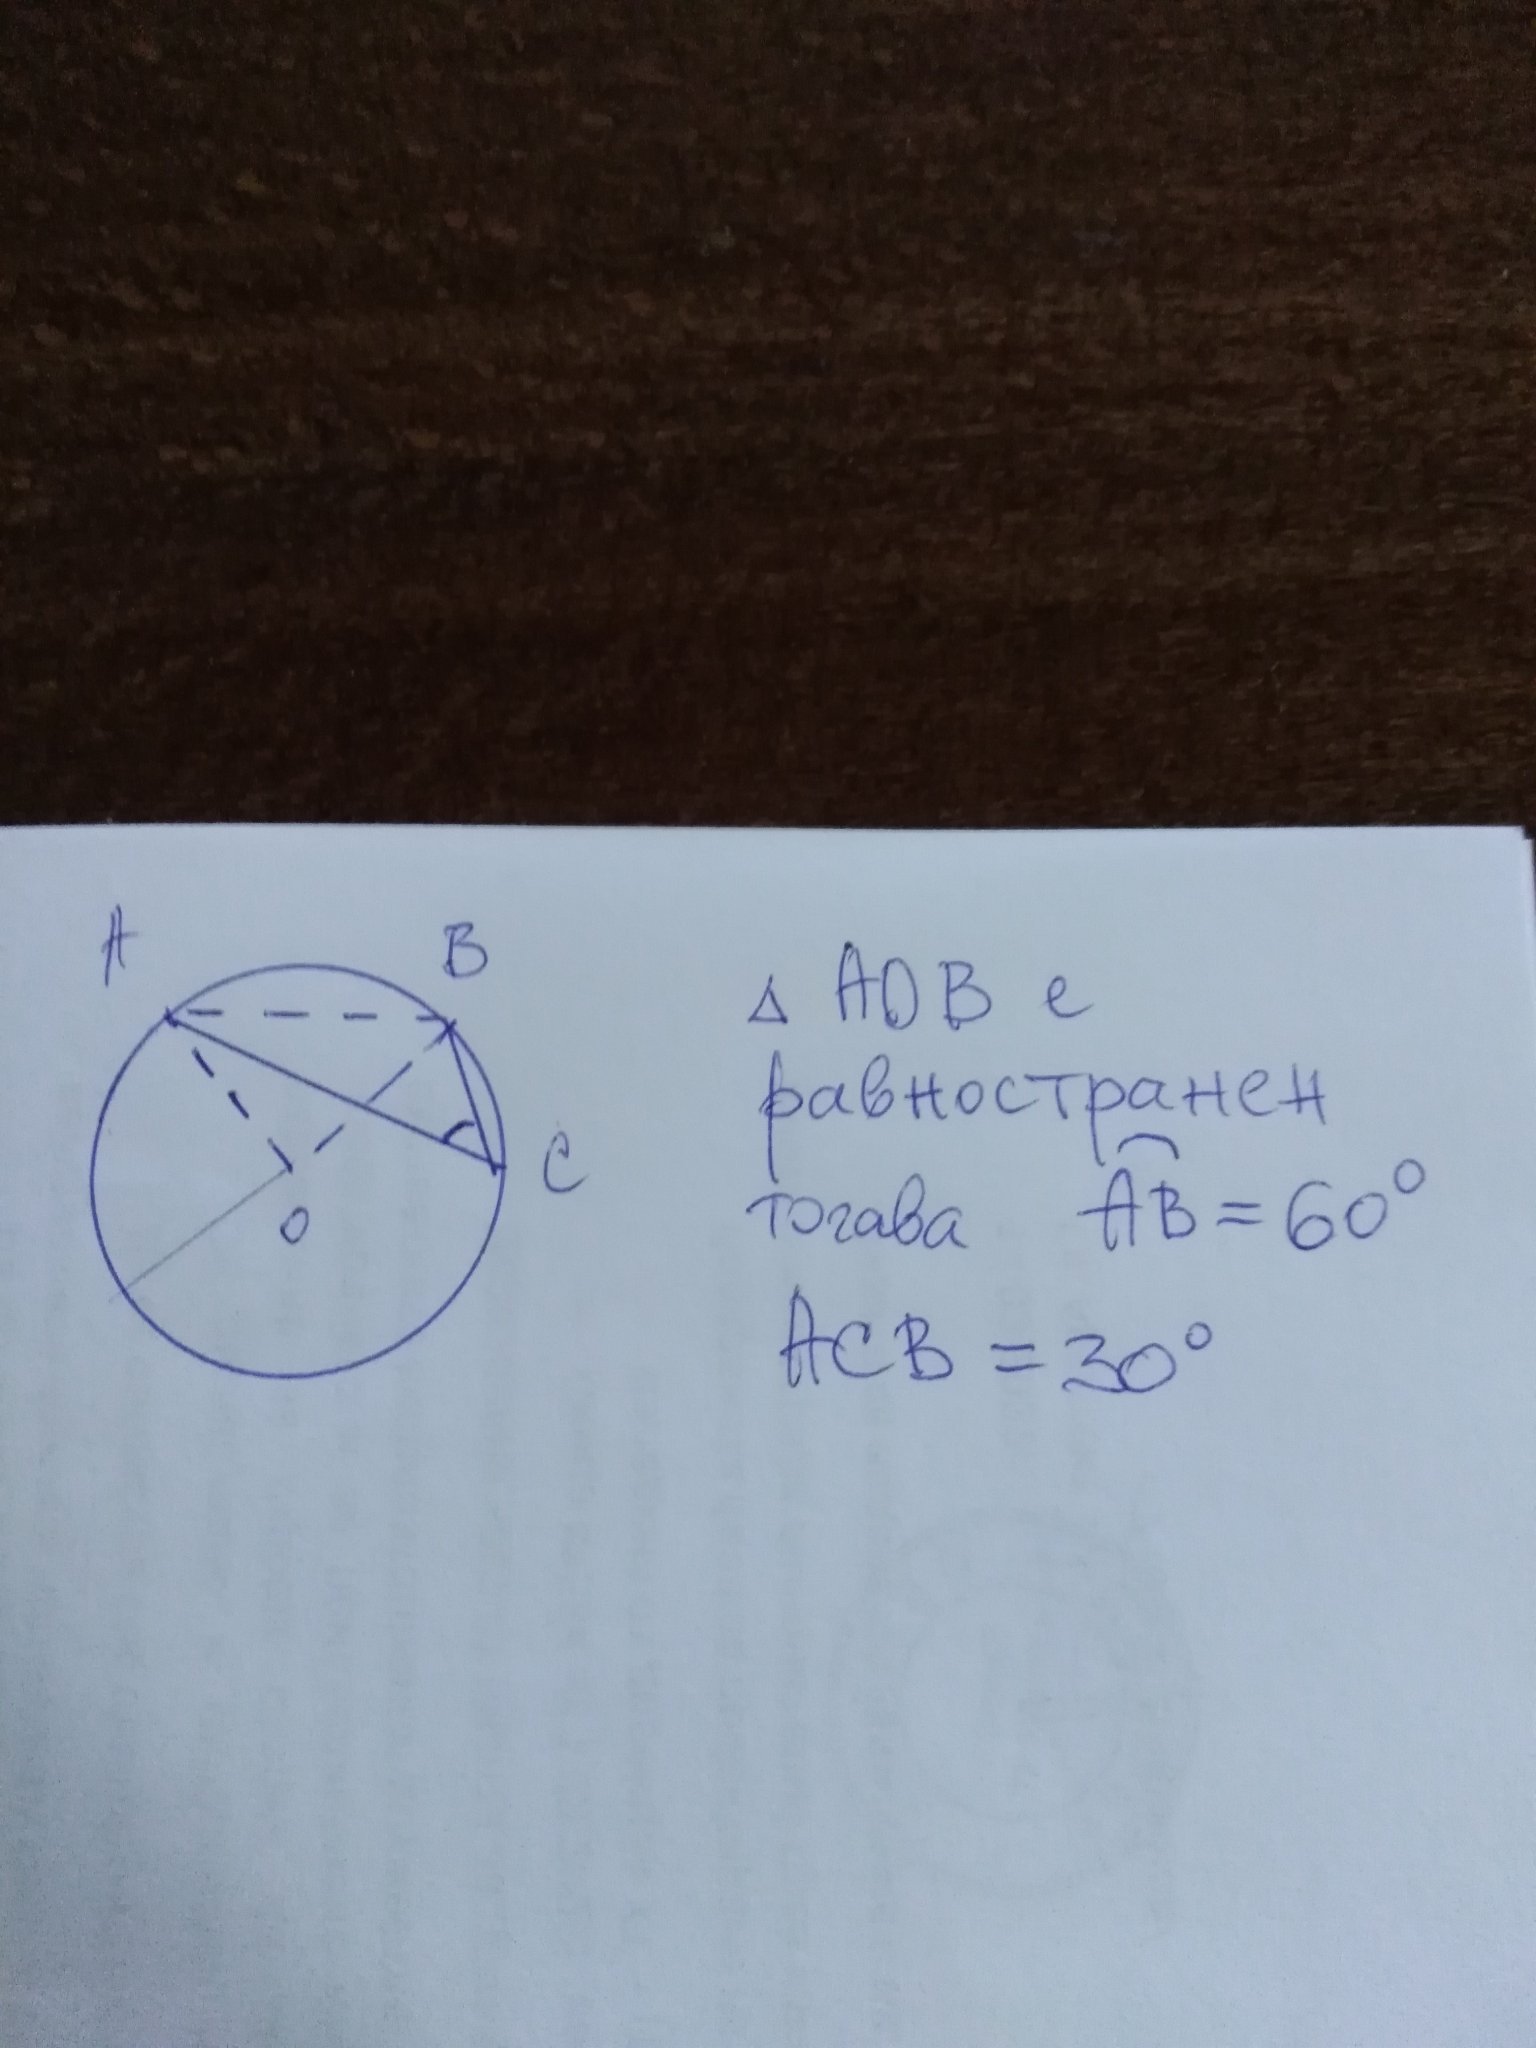 A
B
C
O
△ AOB е
равностранен
тогава AB = 60°
ACB = 30°